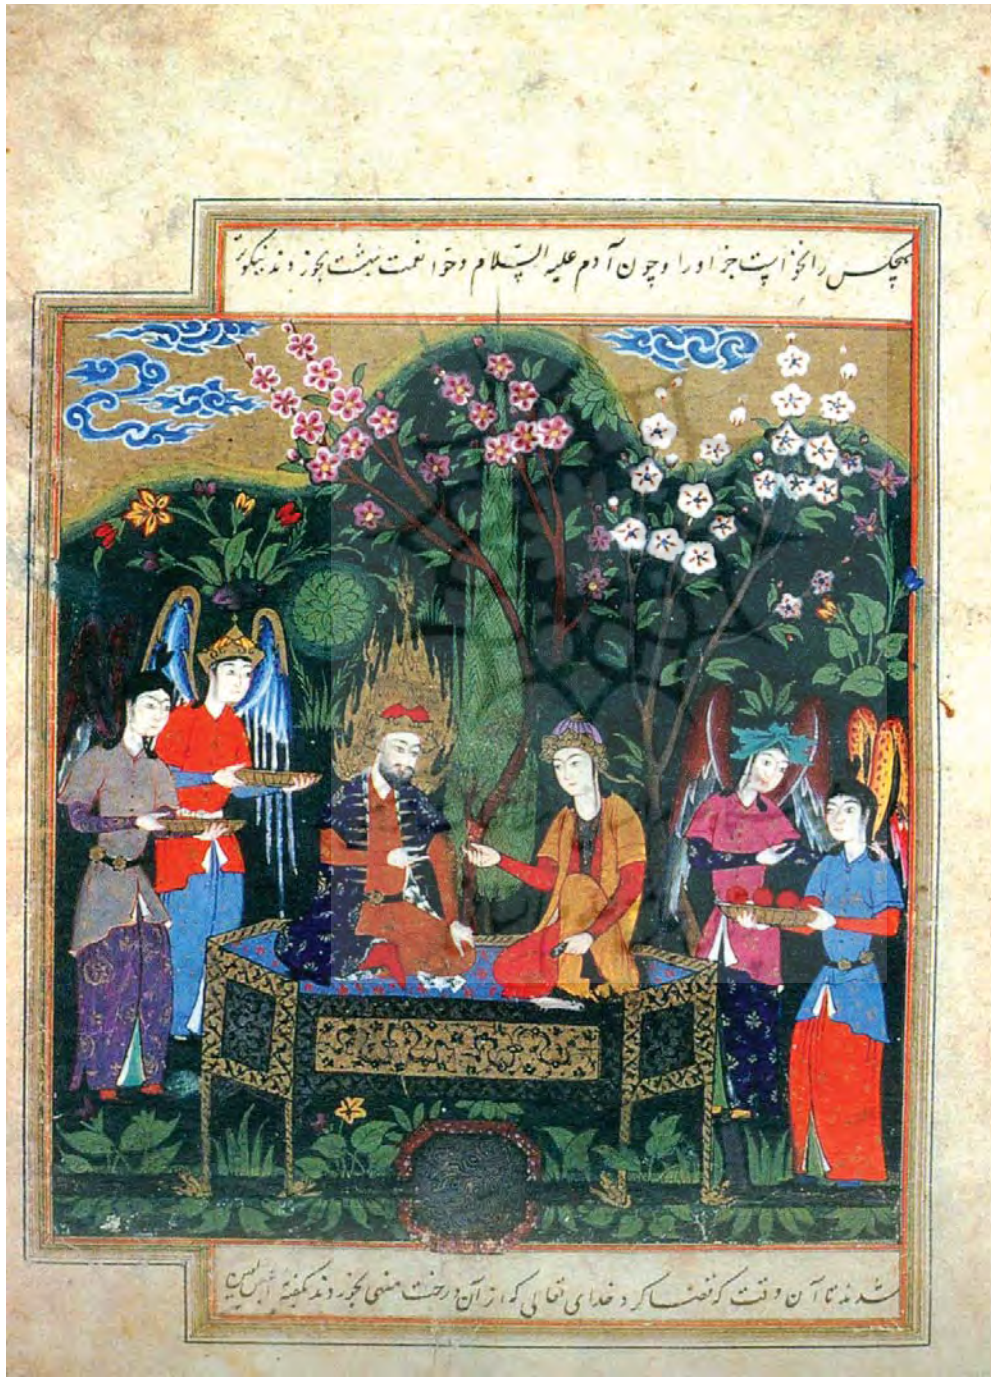 هیچکس را بجز ایت جز او را و چون آدم علیه السلام و حوا نعمت بهشت بخوردند نیکوتر
شدند تا آن وقت که قضا کرد خدای تعالی که از آن درخت منهی بخوردند بگفتهٔ ابلیس